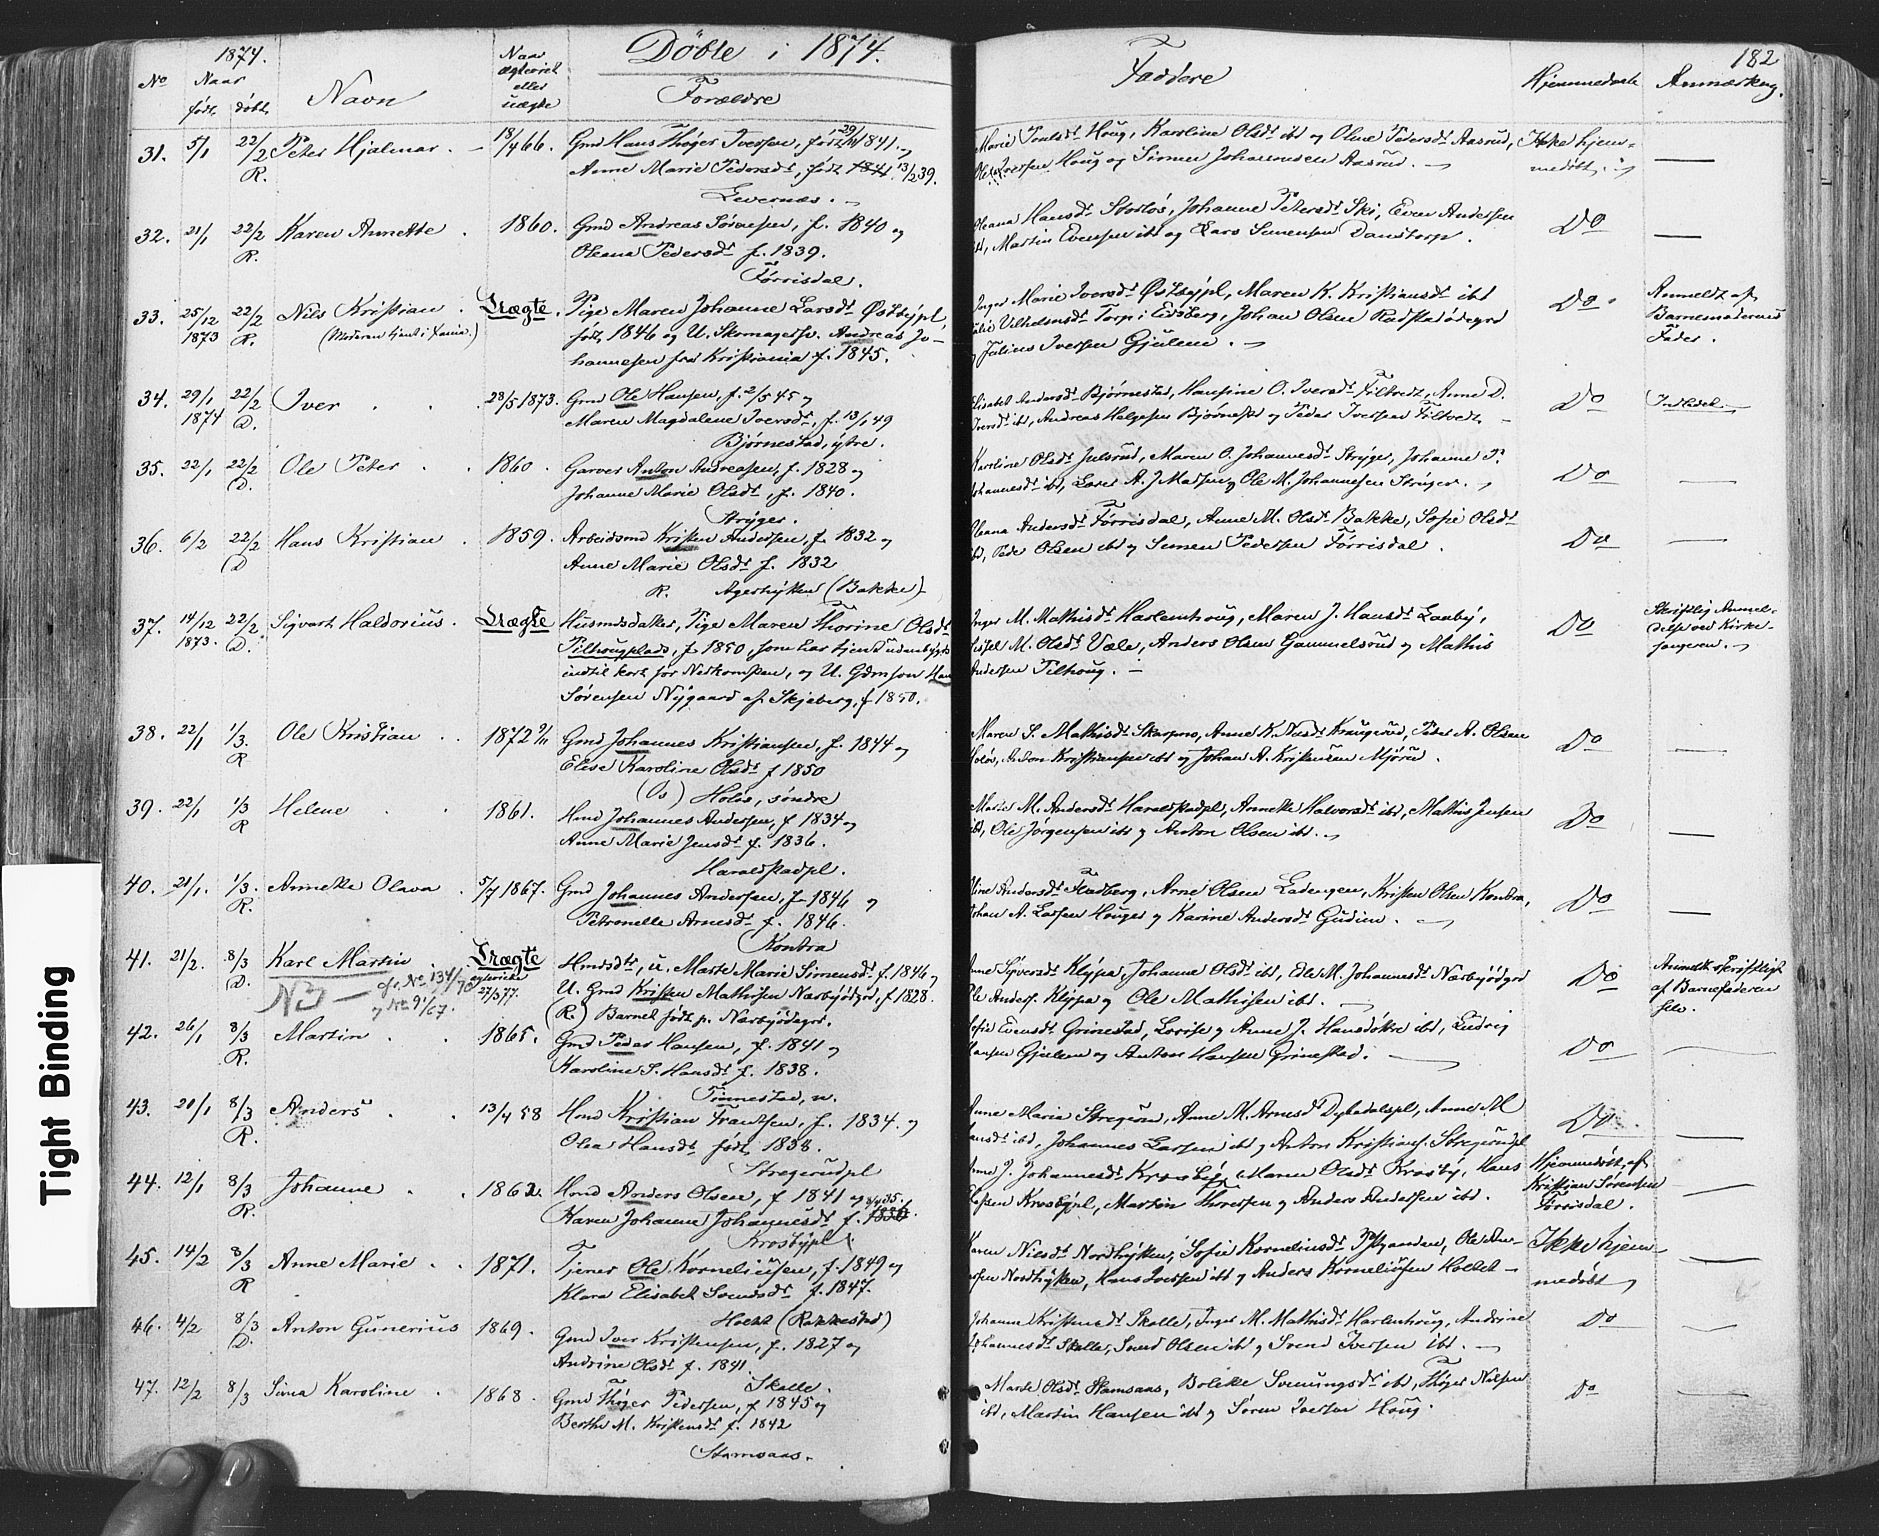 Døbte i 1874.
182
No
1874.
Naar
født, døbt,
Navn
Naar
ægteviet
eller
uægte
Forældre
Faddere
Hjemmedøbt
Anmærkng.
31. 5/1 22/2 R. Peter Hjalmar. 18/4 66. Gmd Hans Thøger Iversen, født 29/11 1841. og
Anne Marie Pedersdt, født 13/2 39.
Levernæs.
Marie Poulsdt Houg, Karoline Olsdt ibt og Oline Pedersdt Aasrud,
Iversen Houg og Simen Johannesen Aasrud.
Ikke hjem-
medøbt.
32. 21/1 22/2 R. Karen Annette. 1860. Gmd Andreas Sørensen, f. 1840 og
Oleana Pedersdt f. 1839.
Førrisdal.
Oleana Hansdt Stortøs, Johanne Petersdt Ski, Even Andersen
ibt, Martin Evensen ibt og Lars Simensen Danstorp.
Do
33. 25/12 1873 22/2 R. Nils Kristian. Uægte. Pige Maren Johanne Larsdt Østbypl,
(Moderen tjent i Xania.)
født 1846 og U. Skomagersv. Andreas Jo-
hannesen fra Kristiania f. 1845.
Inger Marie Iversdt Østbypl, Maren K. Kristiansdt ibt
Vilhelmsdt Torp i Eidsberg, Johan Olsen Rudstadødegrd
og Julius Iversen Gjulem.
Do
Anmeldt af
Barnemoderens
Fader.
34. 29/1 1874 22/2 D. Iver 28/5 1873. Gmd Ole Hansen, f. 2/5 45 og
Maren Magdalene Iversdt, f. 13/1 49
Bjørnestad, ytre.
Elisabet Andersdt Bjørnestad, Hansine O. Iversdt Filtvedt, Anne D.
Iversdt ibt, Andreas Helgesen Bjørnest og Peder Iversen Filtvedt.
Do
35. 22/1 22/2 D. Ole Peter 1860. Garver Anton Andreasen, f. 1828 og
Johanne Marie Olsdt, f. 1840.
Stryger.
Karoline Olsdt Julsrud, Maren O. Johannesdt Stryger, Johanne P.
Johannesdt ibt, Lars A. J Madsen og Ole M. Johannesen Stryger.
Do
36. 6/2 22/2 D Hans Kristian 1859. Arbeidsmd Kristen Andersen, f. 1832 og
Anne Marie Olsdt f. 1832
R. Agerhykken (Bakke)
Oleana Andersdt Førrisdal, Anne M. Olsdt Bakke, Sofie Olsdt
ibt, Peder Olsen ibt og Simen Pedersen Førrisdal.
Do
37. 14/12 1873. 22/2 D. Sigvart Haldorius. Uægte Husmdsdatter, Pige Maren Thorine Olsdt
Tilhougplads, f. 1850, som har tjent udenbygds
indtil kort før Nedkomsten, og U. Gdmsøn Hans
Sørensen Nygaard af Skjeberg, f 1850.
Inger M. Mathisdt Harlemhoug, Maren J. Hansdt Laaby,
M. Olsdt Væle, Anders Olsen Gammelsrud og Mathis
Andersen Tilhoug.
Do
Skriftlig Anmel-
delse ved Kirke-
sangeren.
38. 22/1 1/3. R Ole Kristian 1872 9/11 Gmd Johannes Kristiansen, f. 1844 og
Elise Karoline Olsdt f 1850
(Os) Holøs, søndre
Maren S. Mathisdt Skarpnes, Anne K. Nilsdt Krøugerud, Peder A. Olsen
Holøs, Anton Kristiansen ibt og Johan A. Kristensen Mjørud.
Do
39. 22/1 1/3 R Helene 1861. Hmd Johannes Andersen, f 1834 og
Anne Marie Jensdt f. 1836.
Haraldstadpl.
Marie M. Andersdt Haraldstadpl, Annette Halvorsdt ibt, Mathis Jensen
ibt, Ole Jørgensen ibt og Anton Olsen ibt.
Do
40. 21/1. 1/3. R. Annette Olava. 5/7 1867. Gmd Johannes Andersen, f 1846 og
Petronelle Arnesdt f. 1846.
Kontra
Andersdt Fladberg, Arne Olsen Ladengen, Kristen Olsen Kontra,
Johan A. Larsen Houger og Karine Andersdt Gudim.
Do
41. 21/2. 8/3 D. Karl Martin Uægte
NB — cfr. No 134/70
og No 91/67.
27/3 77.
Hmdsdtr, u. Marte Marie Simensdt f. 1846 og
U. Gmd Kristen Mathisen Nærbyødgrd, f 1828.
(R.) Barnet født p. Nærbyødegrd.
Anne Syversdt Klypa, Johanne Olsdt ibt, Edle M. Johannesdt Nærbyødgrd
Ole Anders. Klypa og Ole Mathisen ibt.
Do
Anmeldt skriftligt
af Barnefaderen
selv.
42. 26/1 8/3 R. Martin. 1865. Gmd Peder Hansen, f. 1841 og
Karoline S. Hansdt f. 1838.
Tinnestad, n.
Sofie Evensdt Grinestad, Lovise og Anne J. Hansdøtre ibt, Ludvig
Hansen Gjellem og Anton Hansen Grinestad.
Do
43. 20/1 8/3 R. Anders 13/4 58 Hmd Kristian Frantsen, f. 1834. og
Olea Hansdt født 1838.
Stregerudpl
Anne Maria Stregerud, Anne M. Arnesdt Dyhedalspl, Anne M
Hansdt ibt, Johannes Larsen ibt og Anton Kristians. Stregerudpl
Do
44. 12/1 8/3 R. Johanne 1862. Hmd Anders Olsen, f 1841 og
Karen Johanne Johannesdt f.
Krosbypl
J. Johannesdt Krosby, Maren Olsdt Krosby, Hans
Krosbypl, Martin Thoresen og Anders Andersen ibt.
Hjemmedøbt af
Kristian Sørensen
Førrisdal.
45. 14/2 8/3 R Anne Marie 1871. Tjener Ole Korneliusen, f. 1849 og
Klara Elisabet Svendsdt f. 1847.
Holtet (Rakkestad)
Karen Nilsdt Nordhykken, Sofie Kornelinsdt, Ole An-
ersen Nordhykken, Hans Iversen ibt og Anders Korneliusen Holtet
Ikke hjem-
medøbt
46. 4/2 8/3 D. Anton Gunerius 1869. Gmd Iver Kristensen, f. 1827 og
Andrine Olsdt f. 1841.
Skolle.
Johanne Kristensdt Skolle, Inger M. Mathisdt Harlemhoug, Andrine
Johannesdt Skolle, Svend Olsen ibt og Svend Iversen ibt.
Do
47. 12/2 8/3 Sina Karoline. 1868. Gmd Thøger Pedersen, f 1845 og
Berthe M. Kristensdt f. 1842
Stamsaas.
Marte Olsdt Stamsaas, Bolette Svenungsdt ibt, Thøger Nilsen
ibt, Martin Hansen ibt og Søren Iversen Houg.
Do
Tight Binding